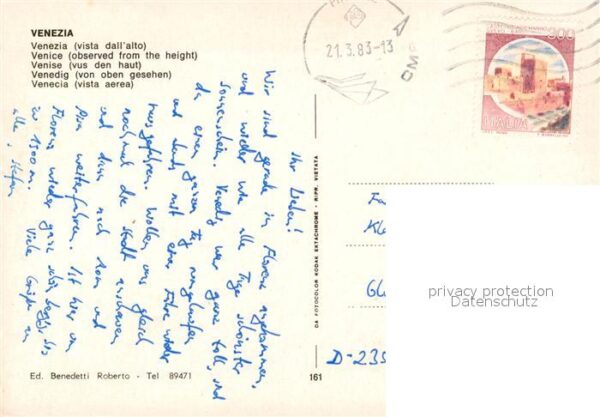 VENEZIA
Venezia (vista dall'alto)
Venice (observed from the height)
Venise (vus den haut)
Venedig (von oben gesehen)
Venecia (vista aerea)
Ihr Lieben!
Wir sind gerade in Florenz angekommen,
und wieder wie alle Tage schönster
Sonnenschein. Venedig war ganz toll, sind
da einen ganzen Tag rumgelaufen
und abends mit einer Fähre wieder
rausgefahren. Wollen uns gleich
nochmal die Stadt anschauen
und dann nach Rom und
Pisa weiterfahren. Ist hier um
Florenz wieder ganz schön bergig, bis
zu 1300 m. Viele Grüße an
alle, Stefan
Ed. Benedetti Roberto - Tel 89471
161
DA FOTOCOLOR KODAK EKTACHROME - RIPR. VIETATA
21.3.83-13
ITALIA
D-235
privacy protection
Datenschutz